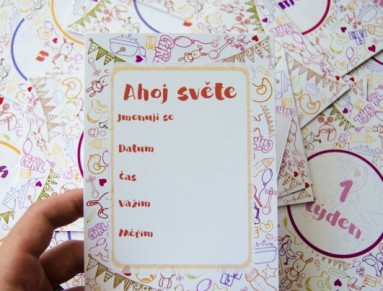 Ahoj světe
Jmenuji se
Datum
Čas
Vážím
Měřím
1
týden